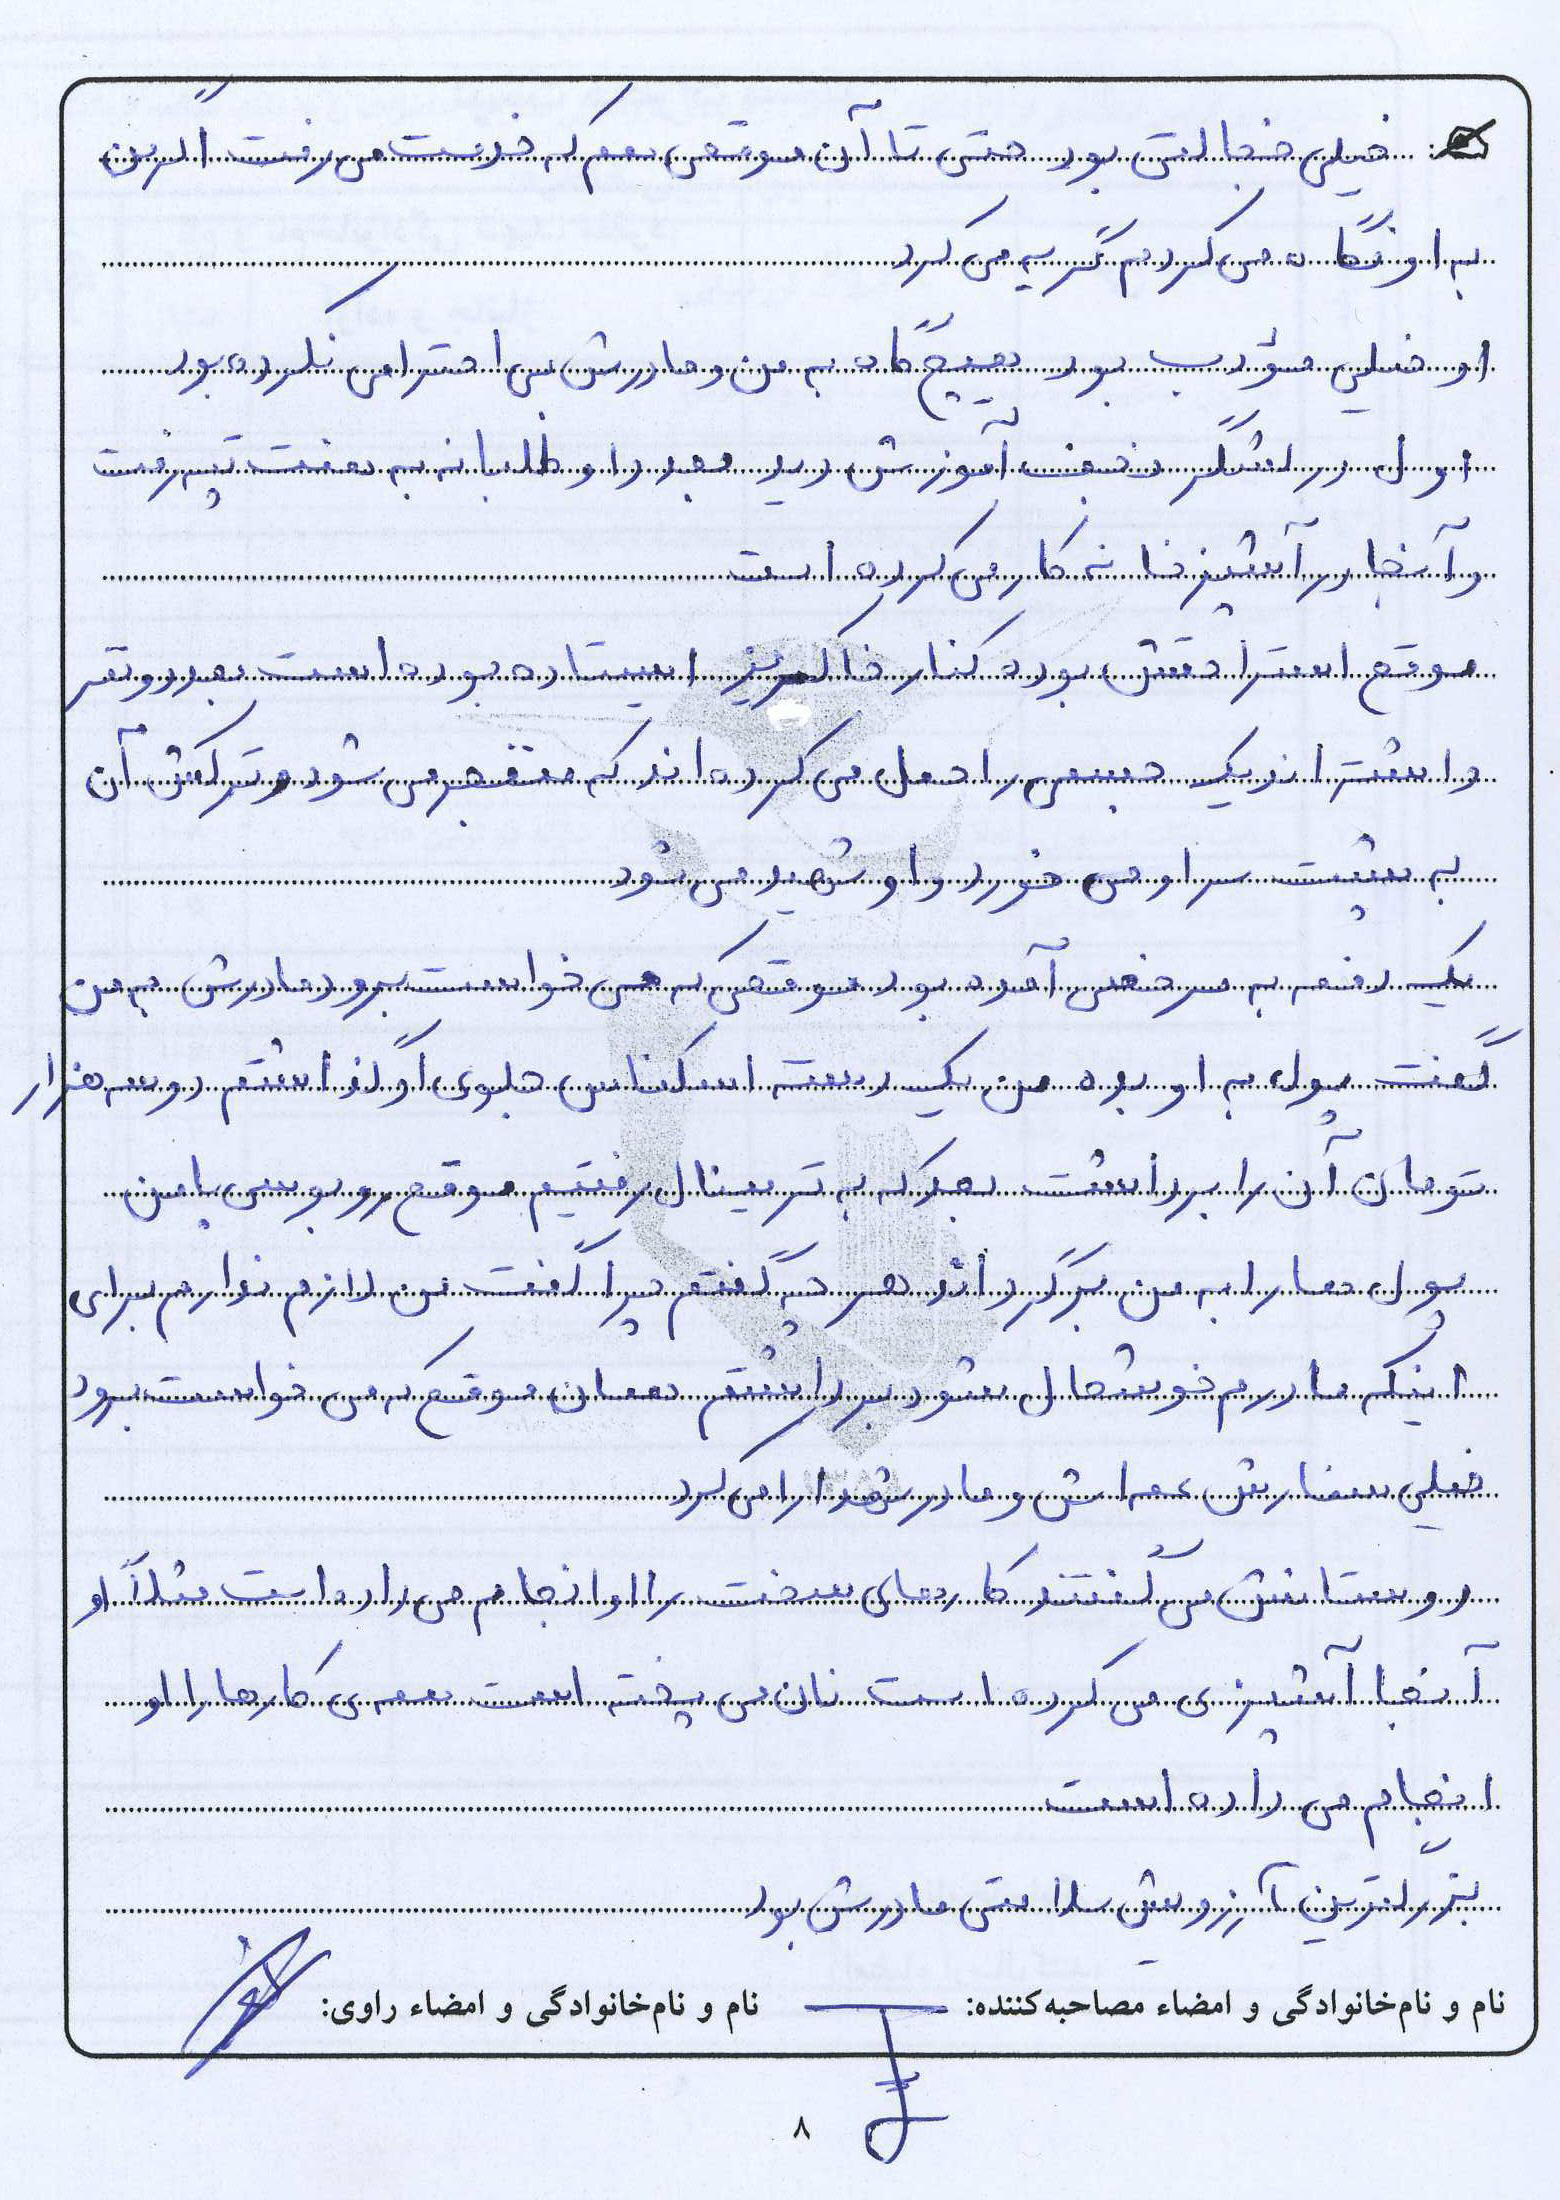 خیلی خجالتی بود حتی تا آن موقعی هم که خدمت می رفت اگر من
به او نگاه می کردم گریه می کرد
او خیلی مؤدب بود هیچ گاه به من و مادرش بی احترامی نکرده بود
اول در لشگر نجف آموزش دید بعد داوطلبانه به هفت تپه رفت
و آنجا در آشپزخانه کار می کرده است
موقع استراحتش بوده کنار خاکریز ایستاده بوده است بعد دو نفر
داشتند یک جسمی را حمل می کرده اند که منفجر می شود و ترکش آن
به پشت سر او می خورد و او شهید می شود
یک دفعه به مرخصی آمده بود موقعی که می خواست برود مادرش به من
گفت پول به او بده من یک دسته اسکناس جلوی او گذاشتم دو سه هزار
تومان آن را برداشت بعد که به ترمینال رفتیم موقع روبوسی با من
پول ها را به من برگرداند هر چه گفتم چرا گفت من لازم ندارم برای
اینکه مادرم خوشحال شود برداشتم همان موقع که می خواست برود
خیلی سفارش عمه اش و مادر شهدا را می کرد
دوستانش می گفتند کارهای سخت را او انجام می داده است مثلاً او
آنجا آشپزی می کرده است نان می پخته است همه ی کارها را او
انجام می داده است
بزرگترین آرزویش سلامتی مادرش بود
نام و نام خانوادگی و امضاء مصاحبه کننده: نام و نام خانوادگی و امضاء راوی:
۸